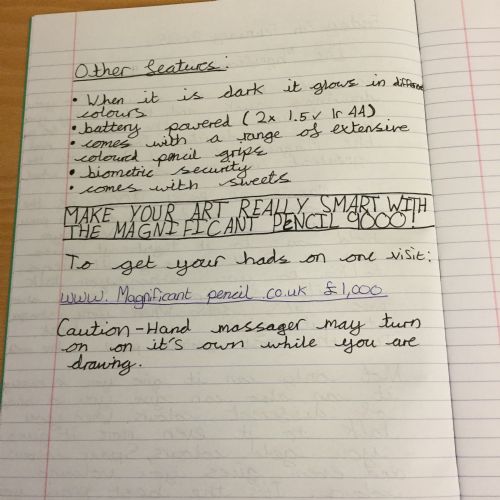 Other featurs:
• When it is dark it glows in different
colours
• battery powered (2x 1.5v lr 44)
• comes with a range of extensive
coloured pencil grips
• biometric security
• comes with sweets
MAKE YOUR ART REALLY SMART WITH
THE MAGNIFICANT PENCIL 9000!
To get your hads on one visit:
www. Magnificant pencil .co.uk £1,000
Caution - Hand massager may turn
on on it's own while you are
drawing.